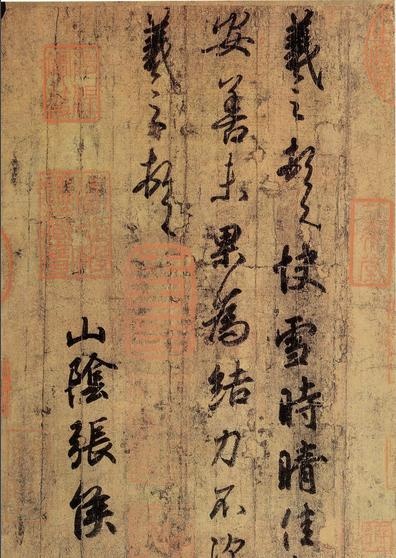 羲之頓首快雪時晴佳
安善未果為結力不次
羲之頓首
山陰張侯